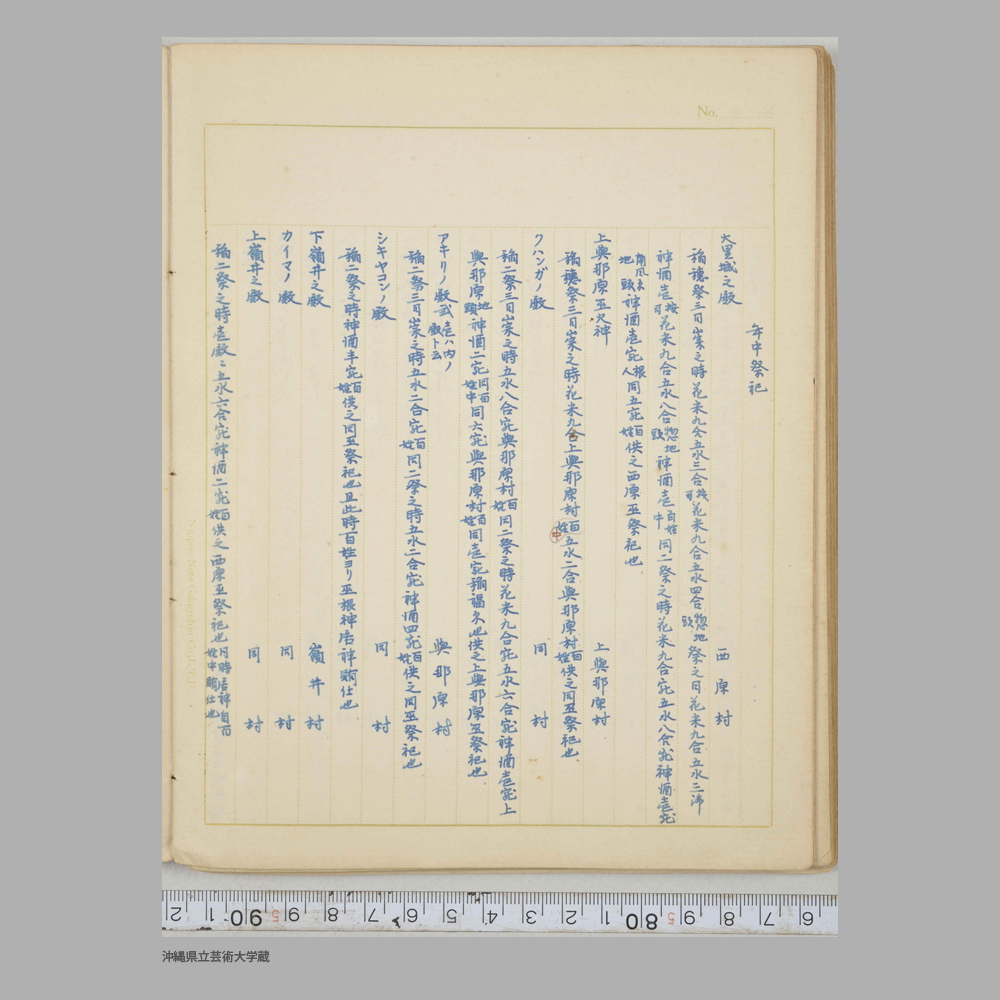 No.
年中祭祀
大里城之殿 西原村
稲穂祭三日崇之時花米九合五水三合按司花米九合五水四合惣地頭祭之日花米九合五水三沸
神酒壱按司花米九合五水八合惣地頭神酒壱百姓中同二祭之時花米九合宛五水八合宛神酒壱宛
南風大地頭神酒壱宛根人同五宛百姓供之西原巫祭祀也
上與那原巫火神 上與那原村
稲穂祭三日崇之時花米九合上與那原村百姓中五水二合與那原村百姓供之同巫祭祀也
クハンガノ殿 同村
稲二祭三日崇之時五水八合宛與那原村百姓同二祭之時花米九合宛五水六合宛神酒壱宛上
與那原地頭神酒二宛同百姓中同六宛與那原村百姓同壱宛稲福大也供之上與那原巫祭祀也
アキリノ殿弐壱ハ内ノ殿ト云 與那原村
稲二祭三日崇之時五水二合宛百姓同二祭之時五水二合宛神酒四宛百姓供之同巫祭祀也
シキヤコンノ殿 同村
稲二祭之時神酒半宛百姓供之同巫祭祀也且此時百姓ヨリ巫根神居神賄仕也
下嶺井之殿 嶺井村
カイマノ殿 同村
上嶺井之殿 同村
稲二祭之時壱殿ニ五水六合宛神酒二宛百姓供之西原巫祭祀也同時居神自百姓中賄仕也
2 1 90 9 8 7 6 5 4 3 2 1 80 9 8 7 6
沖縄県立芸術大学蔵